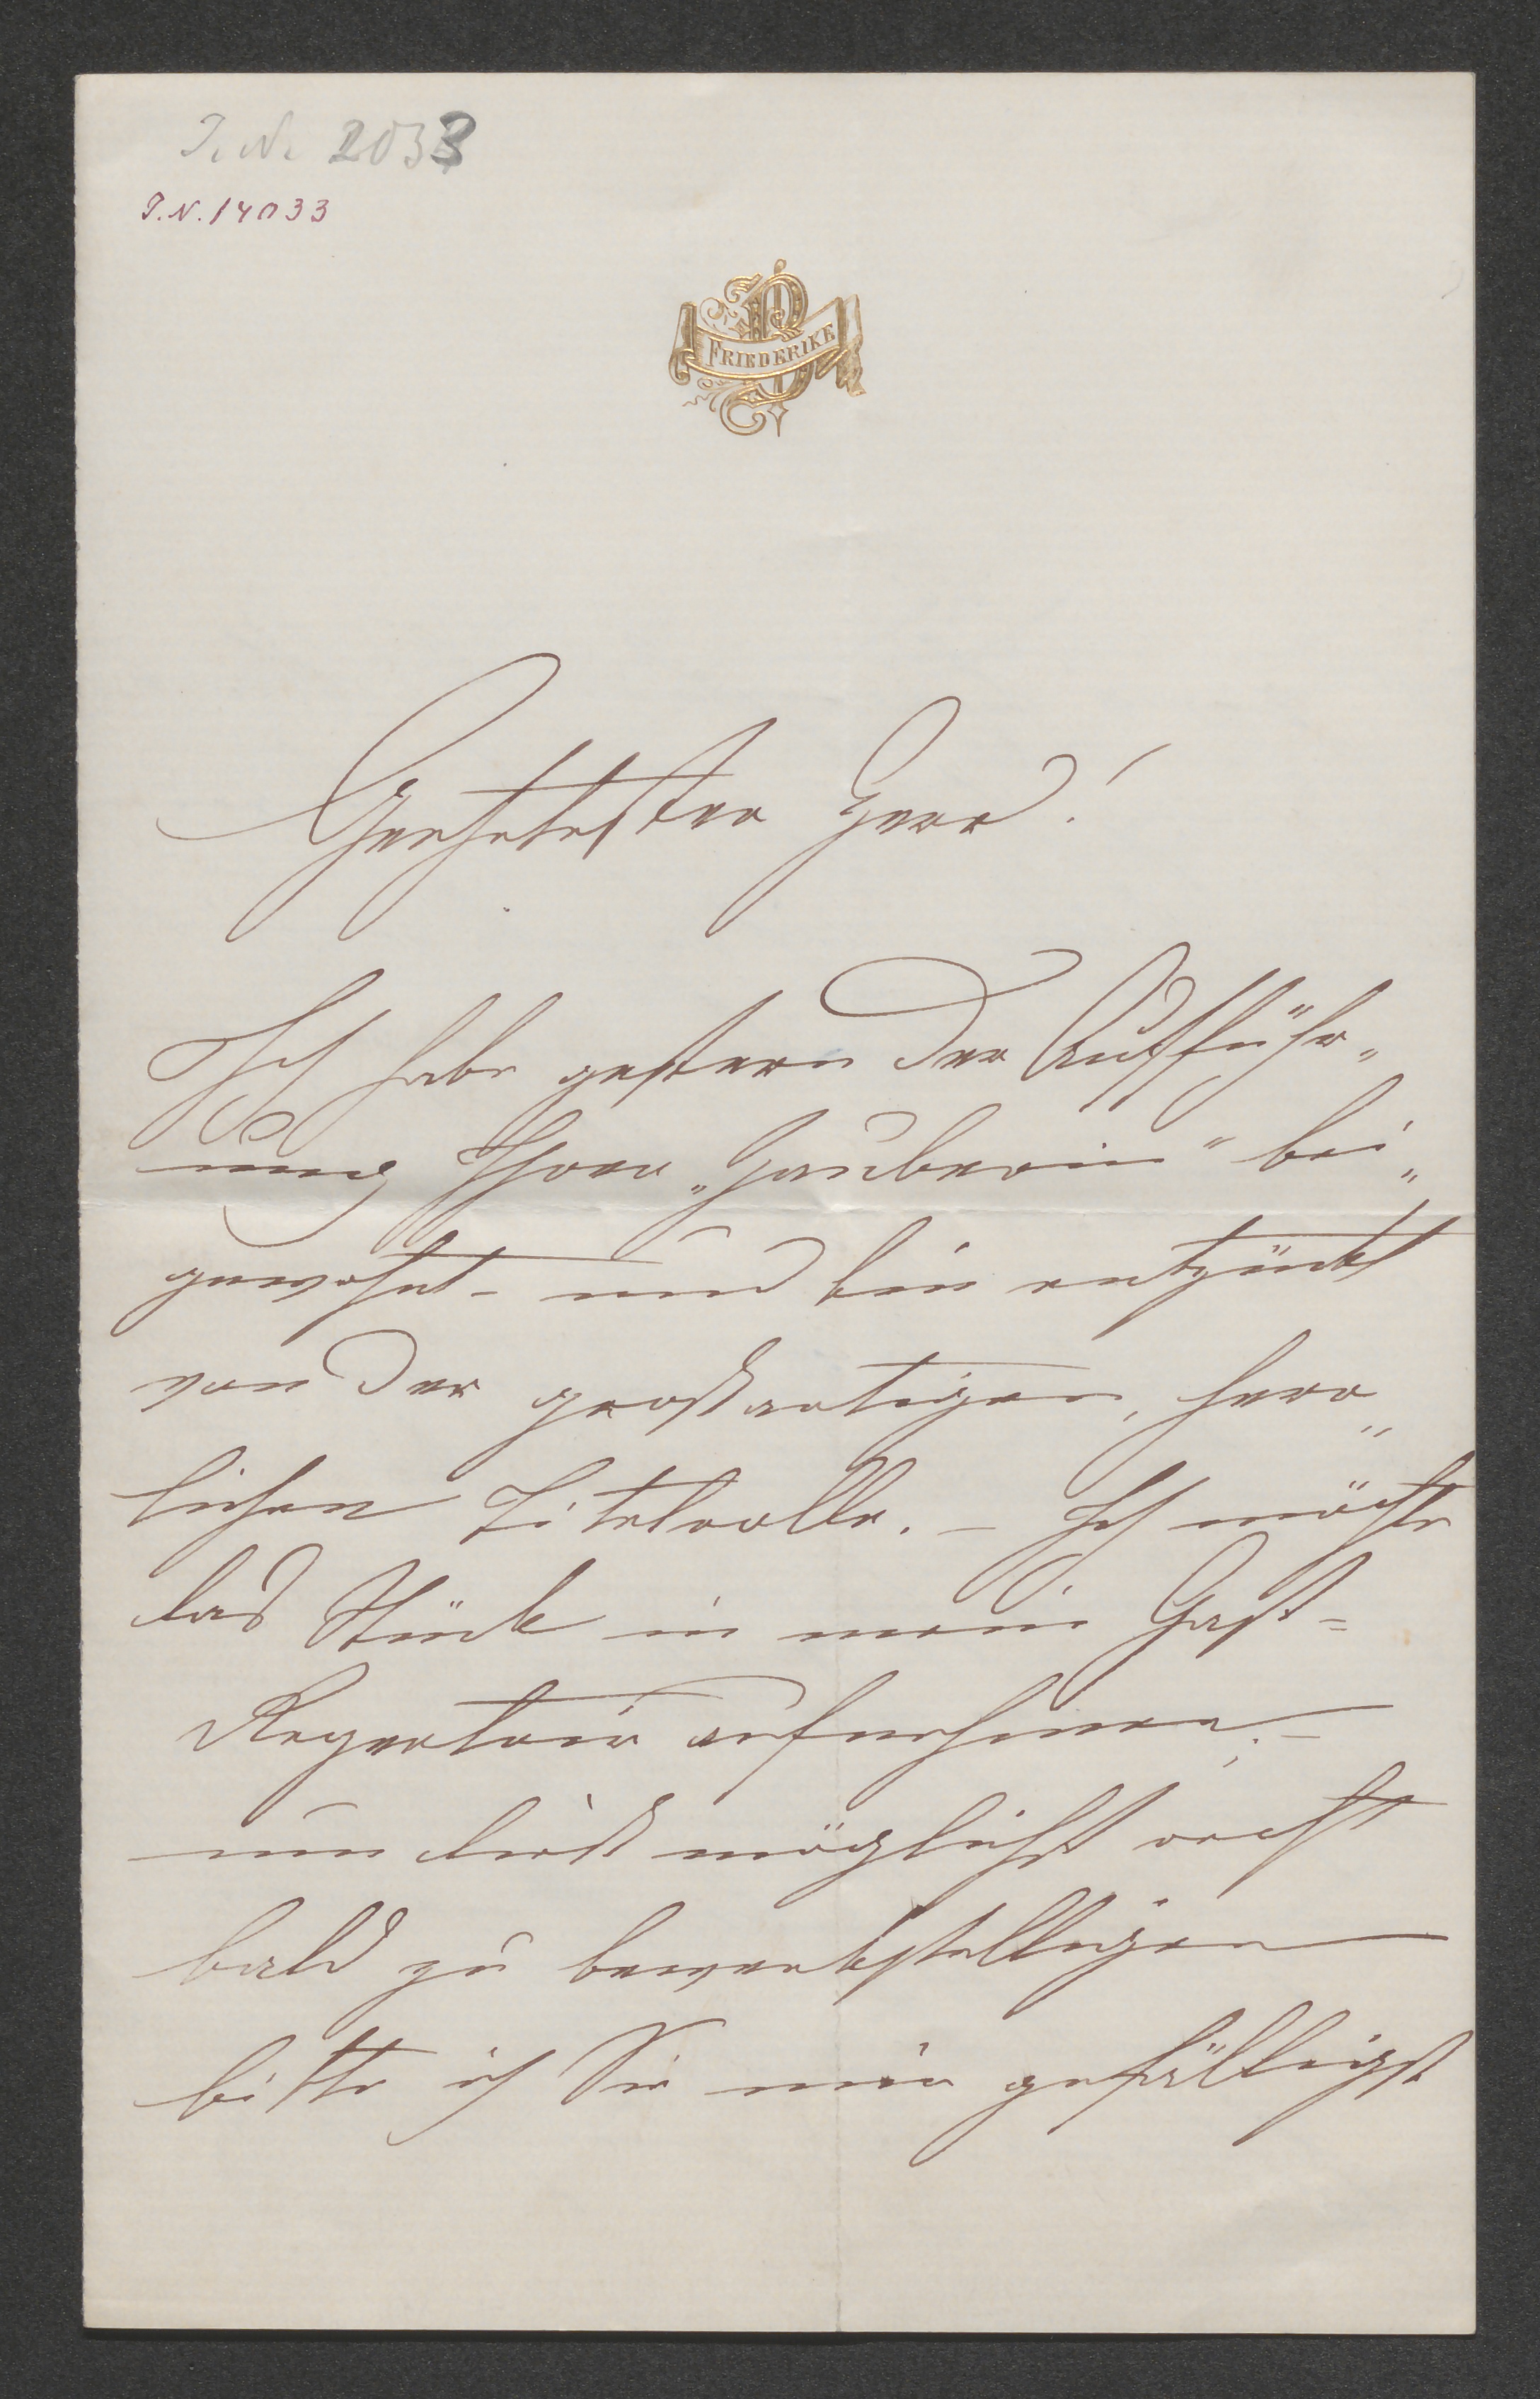 I. N. 2033
I.N. 14033
FRIEDERIKE
Geehrtester Herr!
Ich habe gestern der Aufführ„
ung Ihrer „Zauberin" bei„
gewohnt - und bin entzückt
von der großartigen, herr„
lichen Titelrolle. - Ich möchte
das Stück in mein Gast=
Repertoir aufnehmen; -
um dieß möglichst recht
bald zu bewerkstelligen
bitte ich Sie mir gefälligst